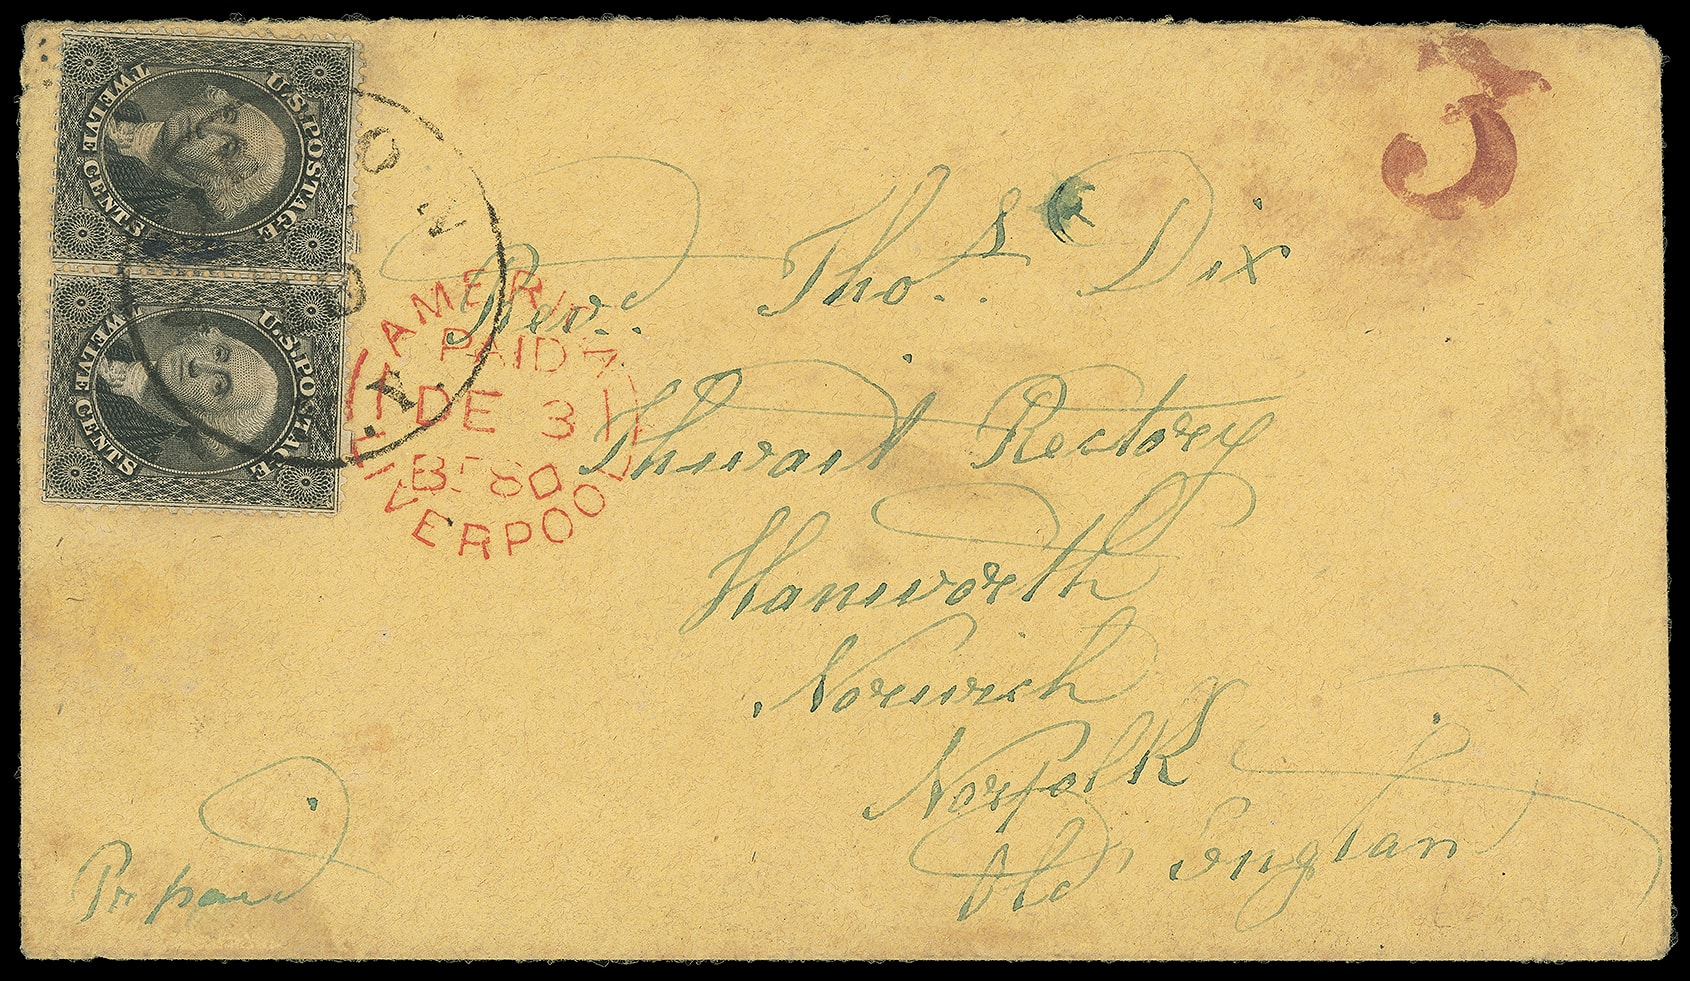 U.S. POSTAGE
TWELVE CENTS
U.S. POSTAGE
TWELVE CENTS
3
AMERI
PAID
DE 31
60
LIVERPOOL
Revd. Thos. Dix
Thwart Rectory
Hanworth
Norwich
Norfolk
Old England
Prepaid